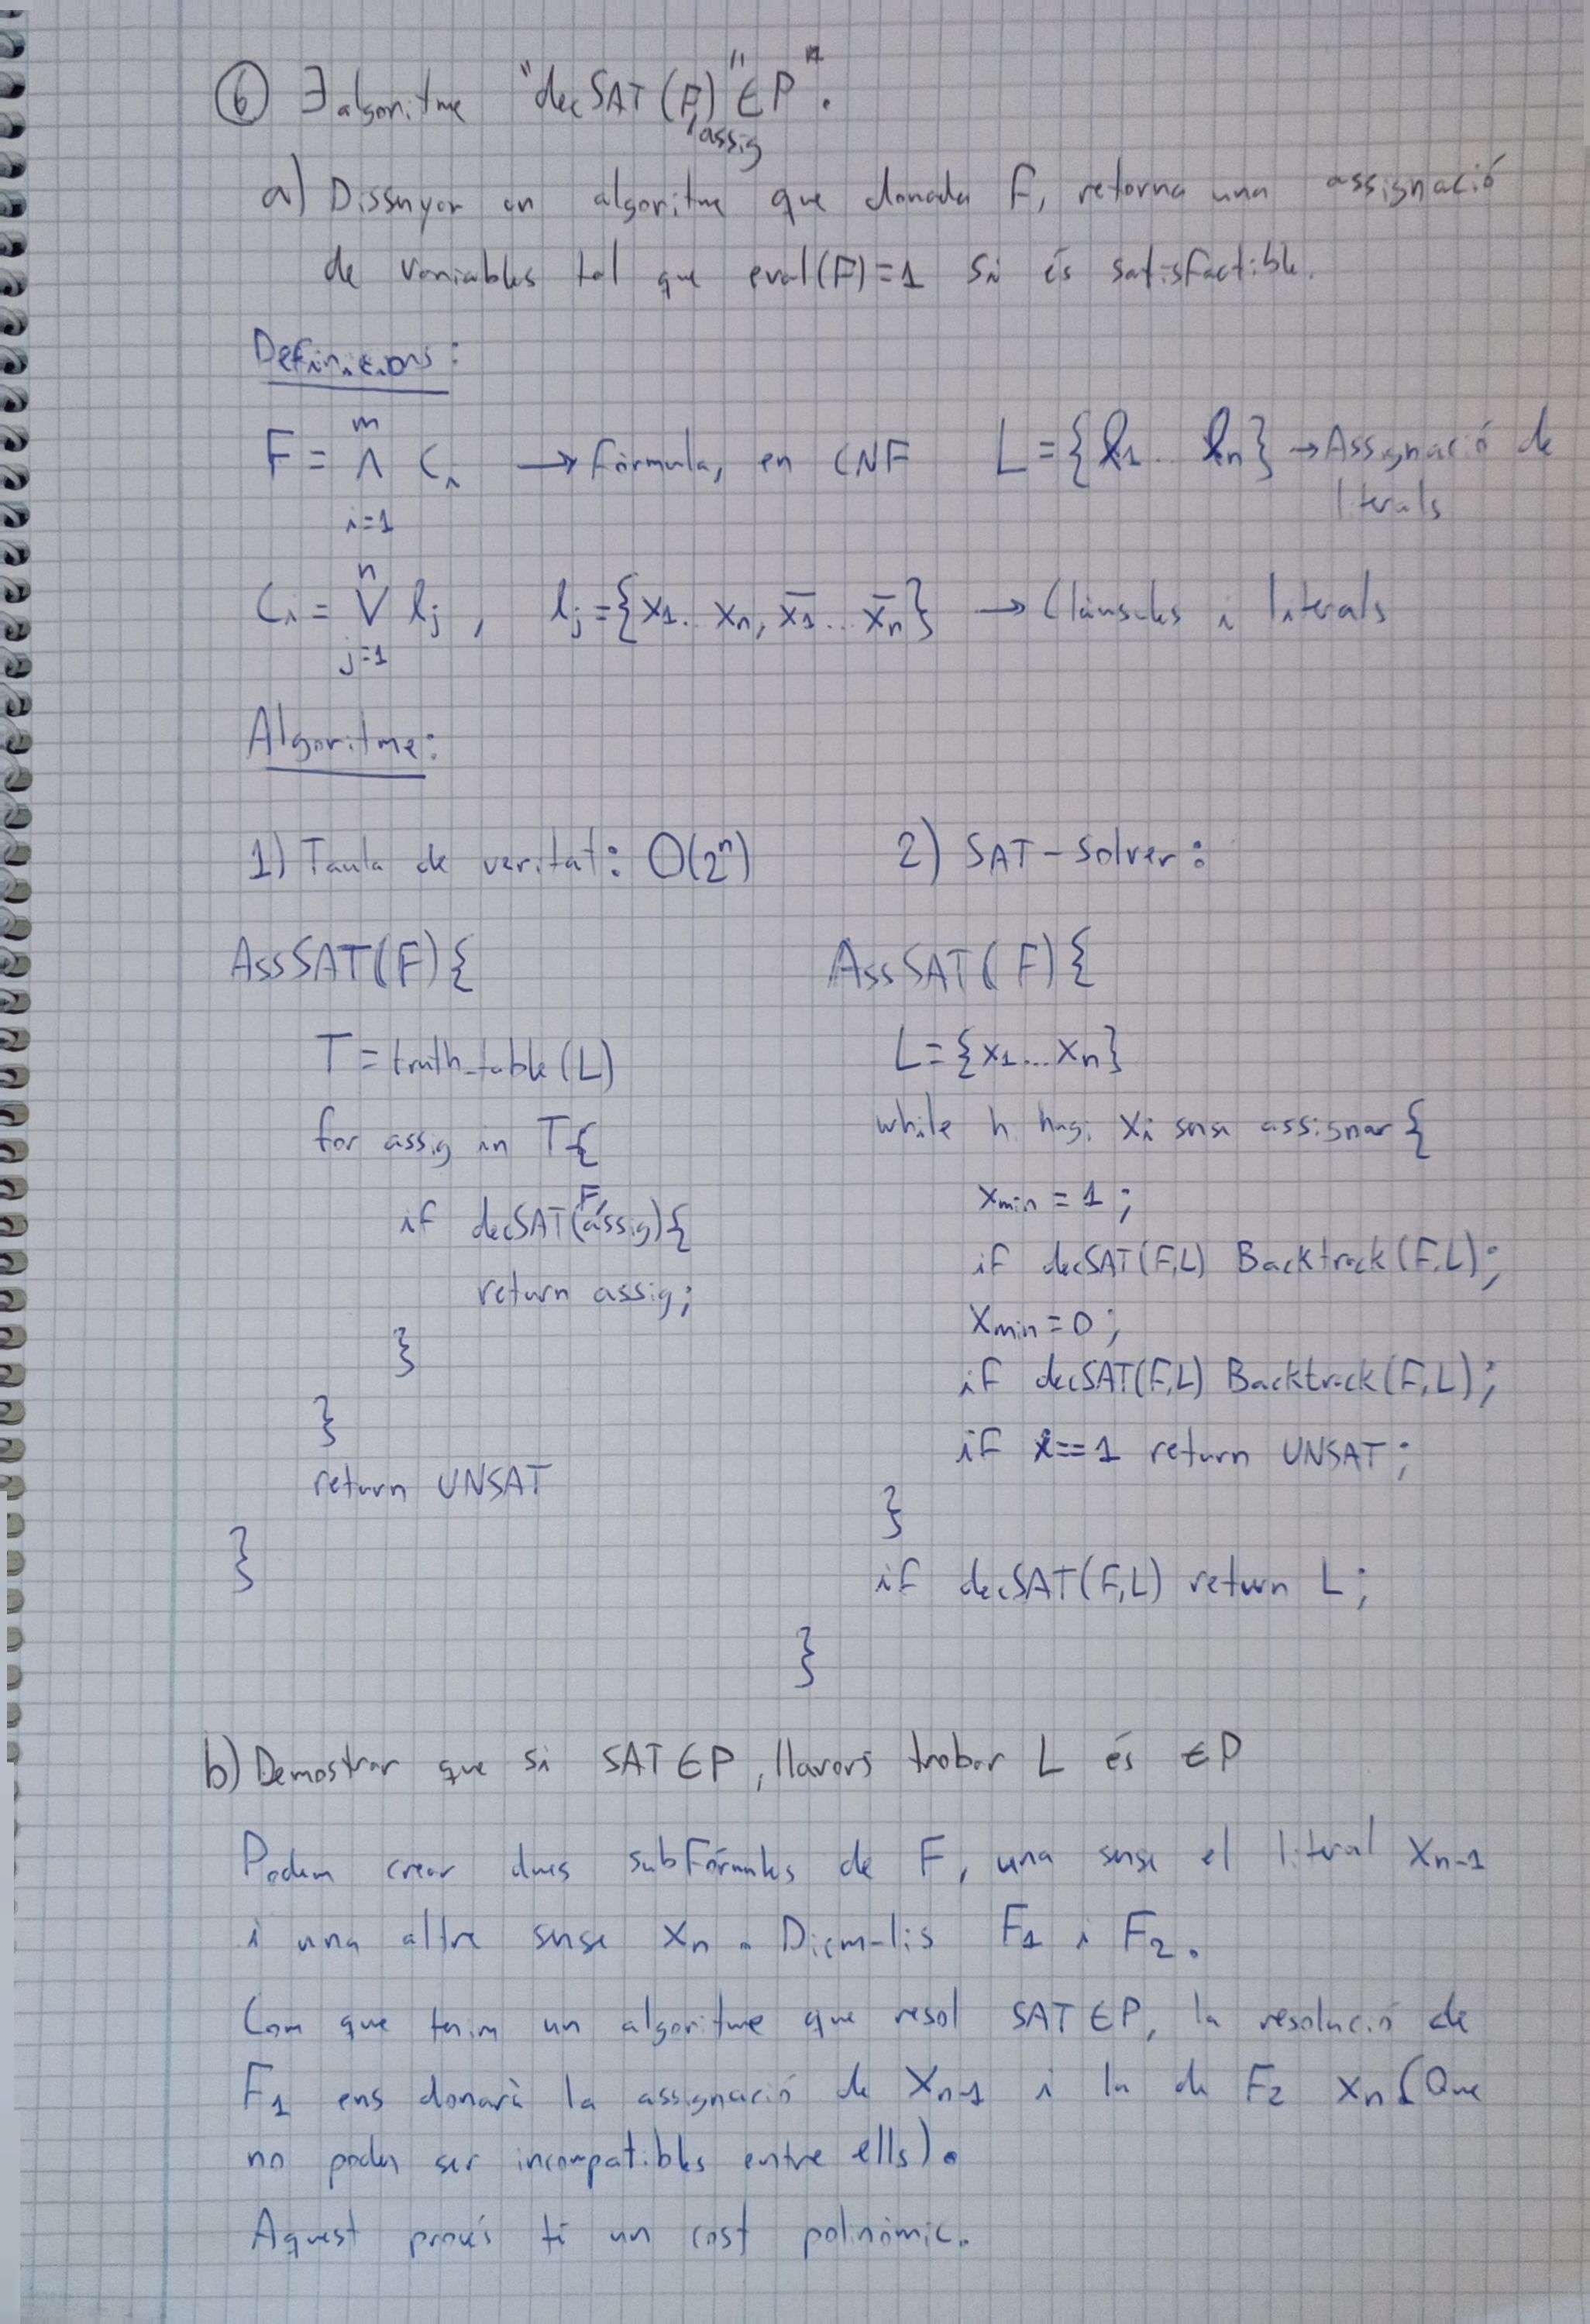 ⑥ ∃ algoritme "decSAT(F, assig)" ∈ P".
a) Dissenyar un algoritme que donada F, retorna una assignació
de variables tal que eval(F)=1 si és satisfactible.
Definicions:
F = ∧ᵢ₌₁ᵐ Cᵢ → fórmula, en CNF L={l₁...lₙ} → Assignació de
literals
Cᵢ = ∨ⱼ₌₁ⁿ lⱼ, lⱼ={x₁...xₙ, x̄₁...x̄ₙ} → Clàusules i literals
Algoritme:
1) Taula de veritat: O(2ⁿ)
AssSAT(F){
T = truth_table(L)
for assig in T{
if decSAT(F, assig){
return assig;
}
}
return UNSAT
}
2) SAT-solver:
AssSAT(F){
L={x₁...xₙ}
while hi hagi xᵢ sense assignar{
xmin = 1;
if decSAT(F,L) Backtrack(F,L);
xmin = 0;
if decSAT(F,L) Backtrack(F,L);
if i==1 return UNSAT;
}
if decSAT(F,L) return L;
}
b) Demostrar que si SAT∈P, llavors trobar L és ∈P
Podem crear dues subfórmules de F, una sense el literal xₙ₋₁
i una altre sense xₙ. Diem-lis F₁ i F₂.
Com que tenim un algoritme que resol SAT∈P, la resolució de
F₁ ens donarà la assignació de xₙ₋₁ i la de F₂ xₙ (Que
no poden ser incompatibles entre ells).
Aquest procés té un cost polinòmic.